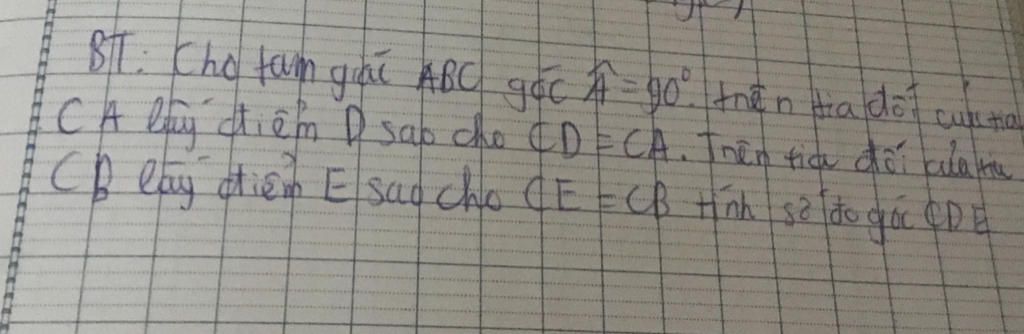 BT: Cho tam giác ABC góc Â = 90°. trên tia đối của tia
CA lấy điểm D sao cho CD = CA. Trên tia đối của tia
CB lấy điểm E sao cho CE = CB tính số đo góc CDE